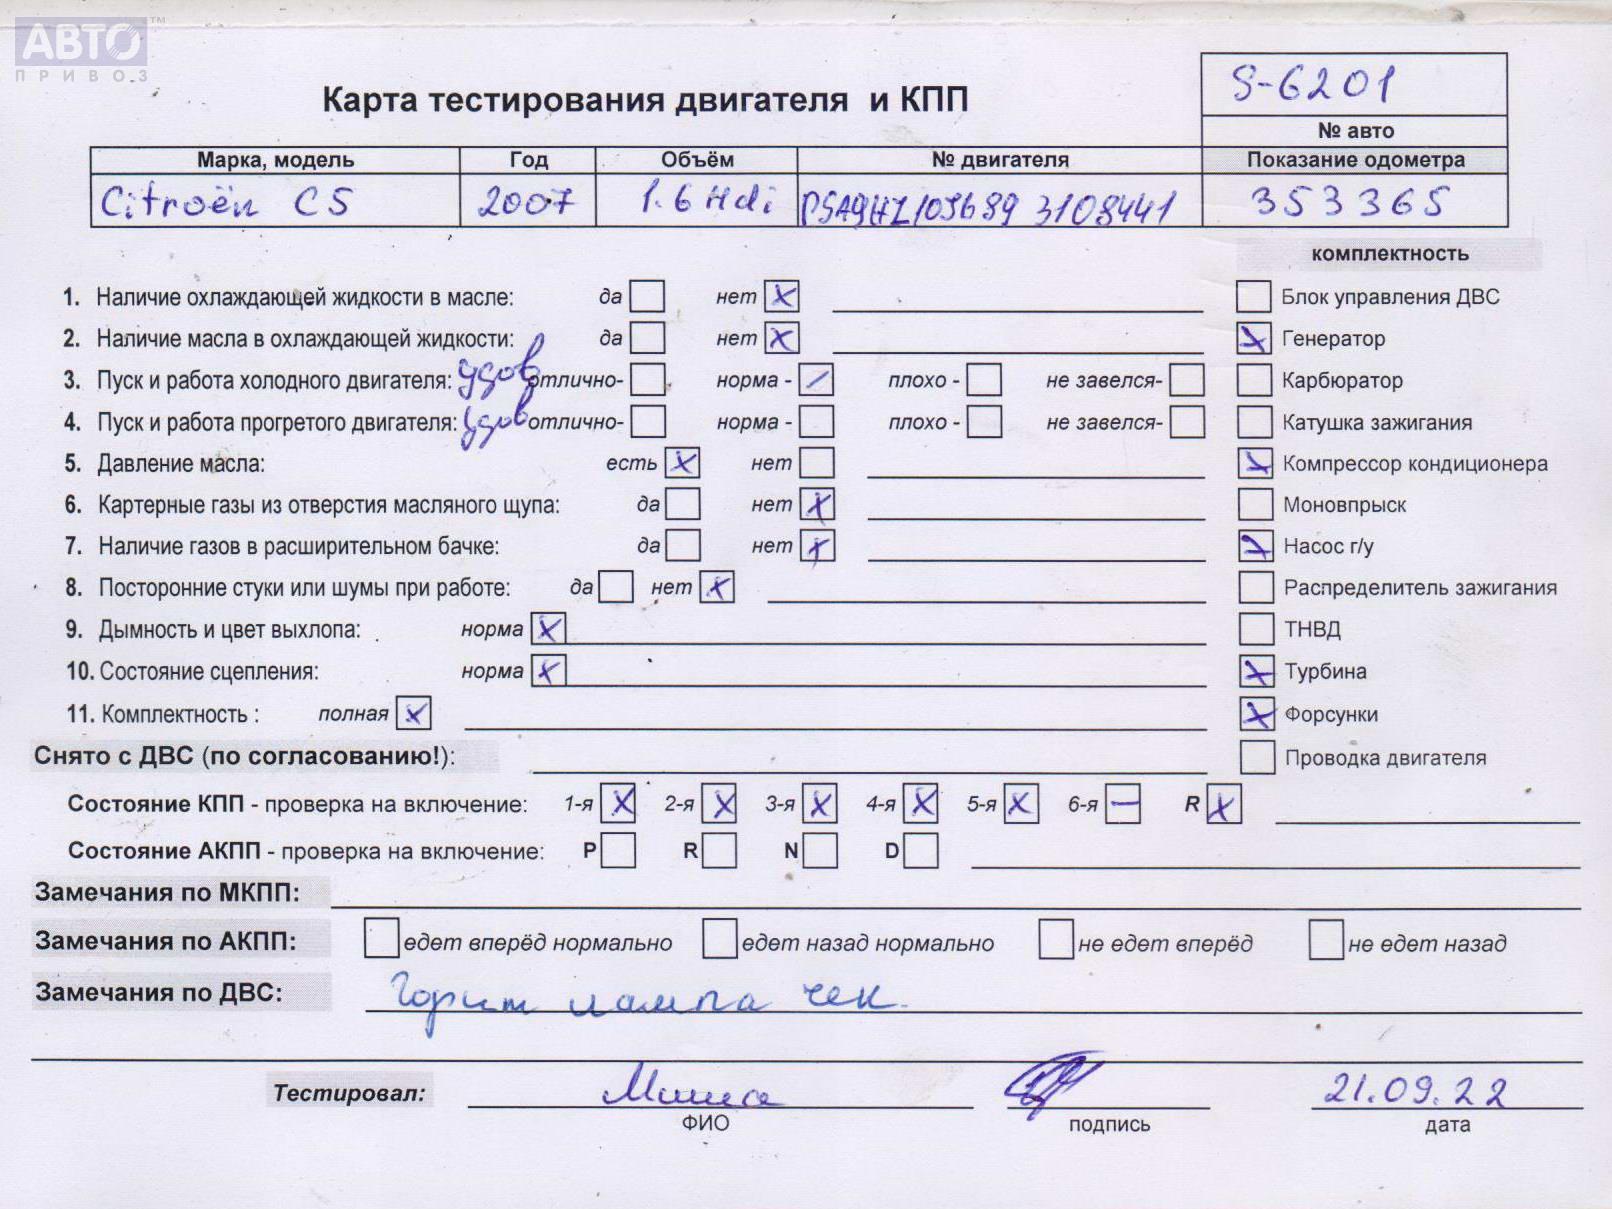 АВТО™
ПРИВОЗ
S-6201
Карта тестирования двигателя и КПП
№ авто
Марка, модель Год Объём № двигателя Показание одометра
Citroën C5 2007 1.6 Hdi PSA9HZ10JG89 3108441 353365
комплектность
1. Наличие охлаждающей жидкости в масле: да нет x Блок управления ДВС
2. Наличие масла в охлаждающей жидкости: да нет x x Генератор
3. Пуск и работа холодного двигателя: удов отлично- норма - / плохо - не завелся- Карбюратор
4. Пуск и работа прогретого двигателя: удов отлично- норма - плохо - не завелся- Катушка зажигания
5. Давление масла: есть x нет x Компрессор кондиционера
6. Картерные газы из отверстия масляного щупа: да нет x Моновпрыск
7. Наличие газов в расширительном бачке: да нет x x Насос г/у
8. Посторонние стуки или шумы при работе: да нет x Распределитель зажигания
9. Дымность и цвет выхлопа: норма x ТНВД
10. Состояние сцепления: норма x x Турбина
11. Комплектность : полная x x Форсунки
Снято с ДВС (по согласованию!): Проводка двигателя
Состояние КПП - проверка на включение: 1-я x 2-я x 3-я x 4-я x 5-я x 6-я — R x
Состояние АКПП - проверка на включение: P R N D
Замечания по МКПП:
Замечания по АКПП: едет вперёд нормально едет назад нормально не едет вперёд не едет назад
Замечания по ДВС: Горит лампа чек.
Тестировал: Миша 21.09.22
ФИО подпись дата